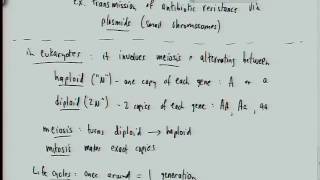 ex. Transmission of antibiotic resistance via
plasmids (small chromosomes)
in eukaryotes : it involves meiosis & alternating between
haploid ("N") - one copy of each gene : A or a
diploid ("2N") - 2 copies of each gene : AA, Aa, aa
meiosis : turns diploid → haploid
mitosis makes exact copies
Life cycles: once around = 1 generation